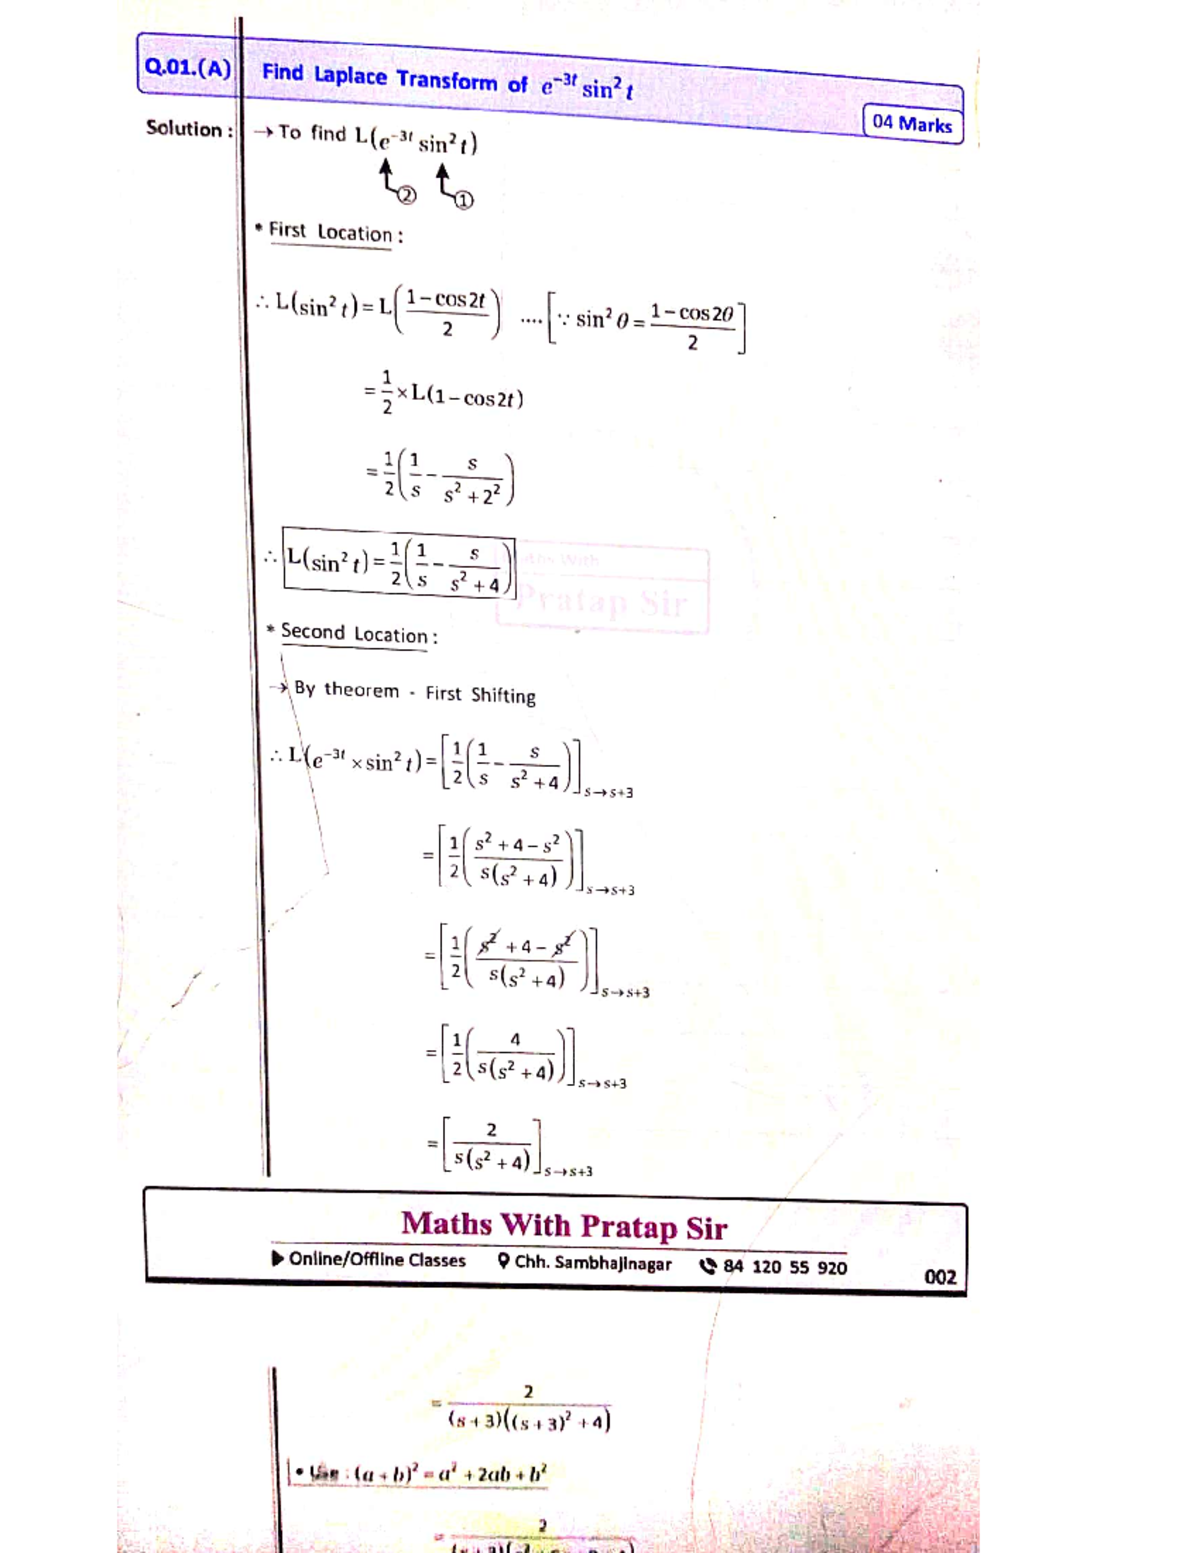 Q.01.(A) Find Laplace Transform of e^{-3t} sin² t
04 Marks
Solution : → To find L(e^{-3t} sin² t)
② ①
* First Location :
∴ L(sin² t) = L((1 − cos 2t)/2) .... [∵ sin² θ = (1 − cos 2θ)/2]
= 1/2 × L(1 − cos 2t)
= 1/2 (1/s − s/(s² + 2²))
∴ L(sin² t) = 1/2 (1/s − s/(s² + 4))
Maths With
Pratap Sir
* Second Location :
→ By theorem - First Shifting
∴ L(e^{-3t} × sin² t) = [1/2 (1/s − s/(s² + 4))] s→s+3
= [1/2 ((s² + 4 − s²)/(s(s² + 4)))] s→s+3
= [1/2 ((s² + 4 − s²)/(s(s² + 4)))] s→s+3
= [1/2 (4/(s(s² + 4)))] s→s+3
= [2/(s(s² + 4))] s→s+3
Maths With Pratap Sir
Online/Offline Classes Chh. Sambhajinagar 84 120 55 920
002
= 2/((s + 3)((s + 3)² + 4))
• Use : (a + b)² = a² + 2ab + b²
= 2